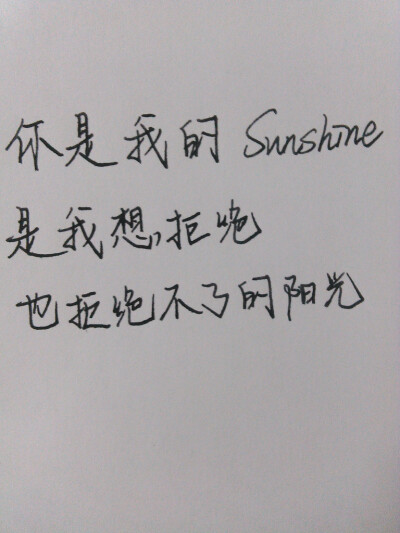 你是我的 Sunshine
是我想拒绝
也拒绝不了的阳光